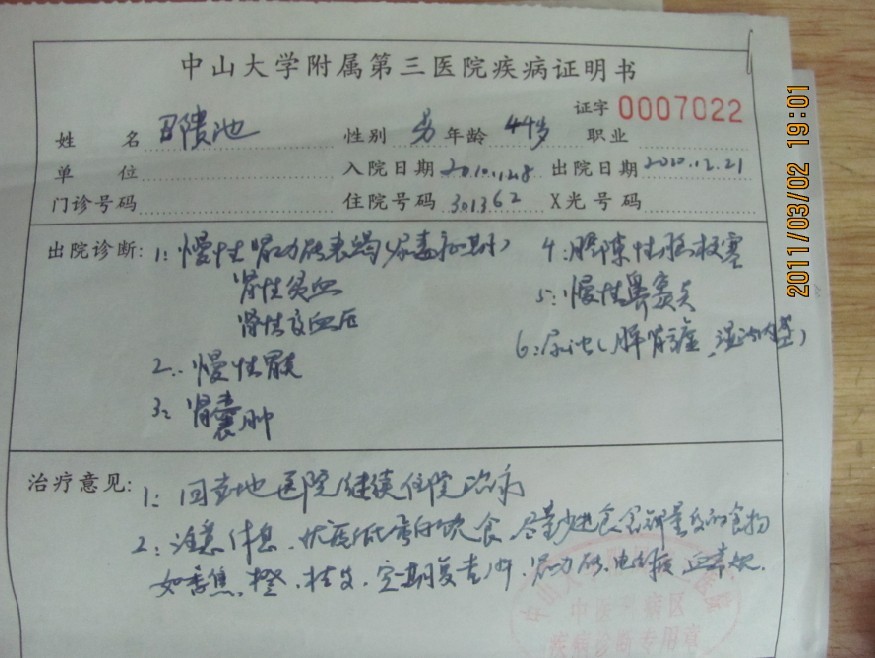 中山大学附属第三医院疾病证明书
证字 0007022
姓 名 池 性别 男 年龄 44岁 职业
单 位 入院日期 出院日期 2010.12.21
门诊号码 住院号码 301362 X光号码
出院诊断: 1: 慢性肾功能衰竭(尿毒症期)
肾性贫血
肾性高血压
2. 慢性胃炎
3: 肾囊肿
4: 腔隙性脑梗塞
5: 慢性鼻窦炎
6:
治疗意见: 1: 回当地医院继续住院治疗
2: 注意休息、优质低蛋白饮食、尽量少进食含钾量高的食物
如香蕉、橙、桔等,定期复查肝、肾功能、电解质、血常规.
中医三病区
疾病诊断专用章
2011/03/02 19:01